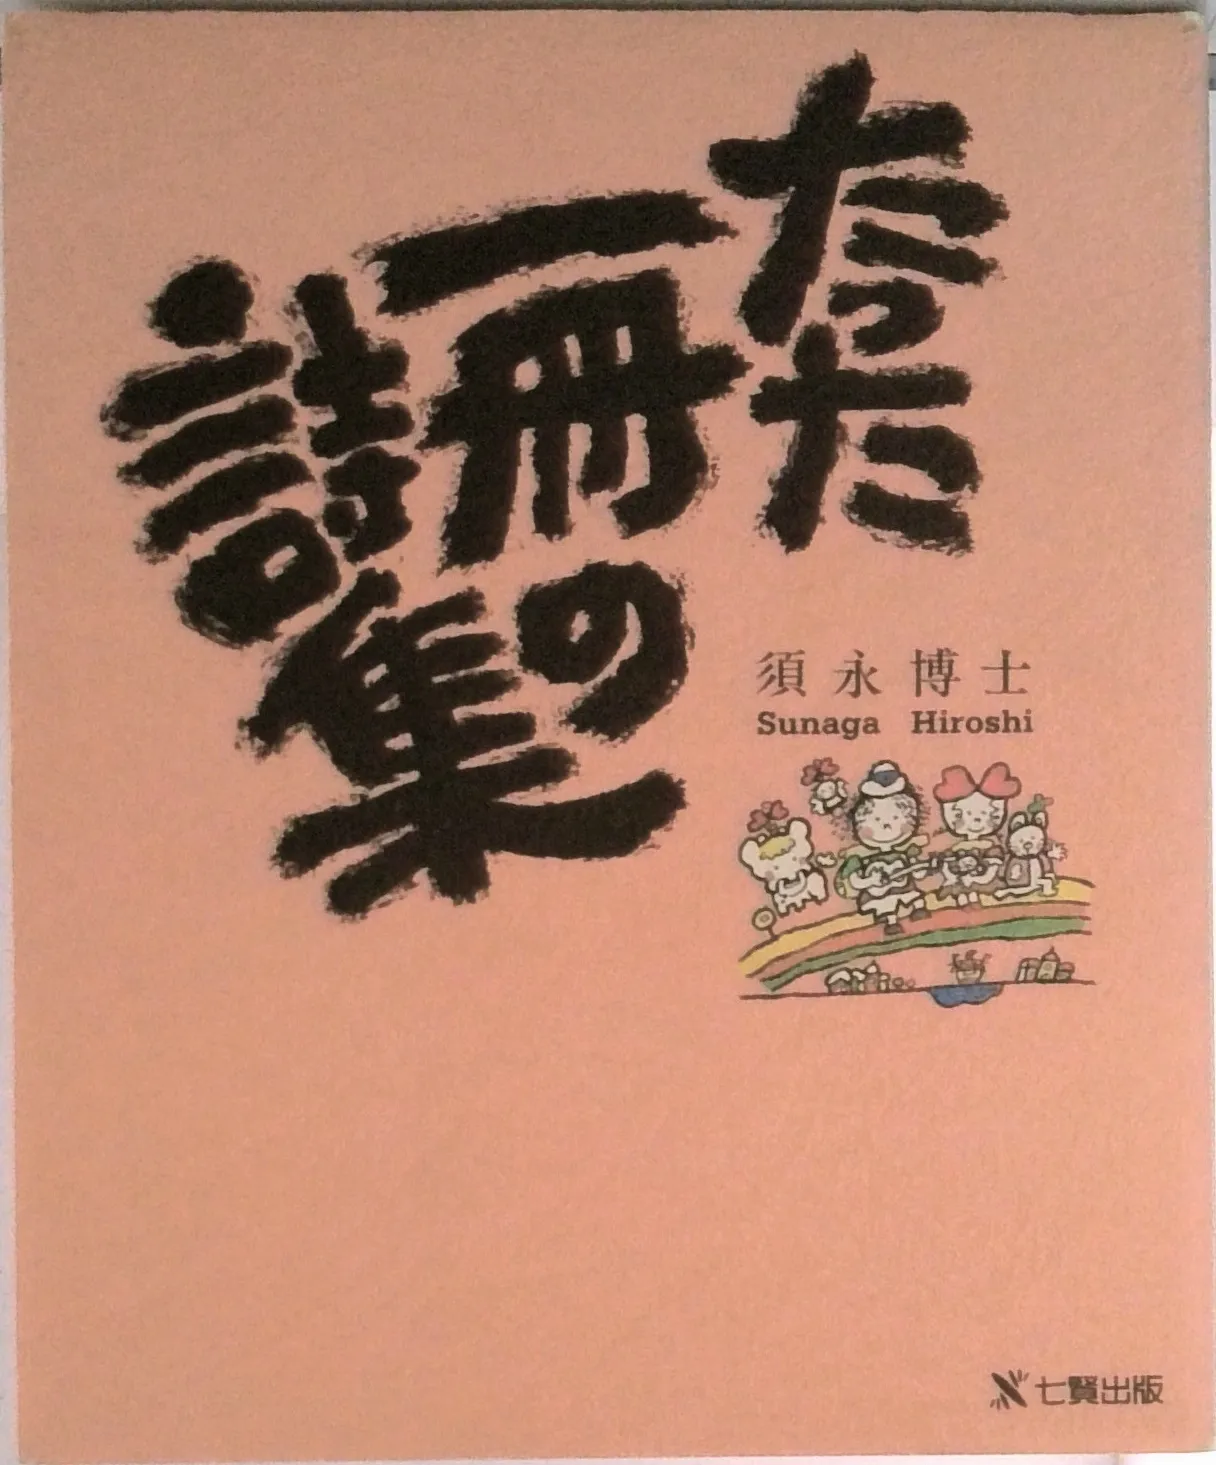 たった
一冊の
詩集
須永博士
Sunaga Hiroshi
七賢出版